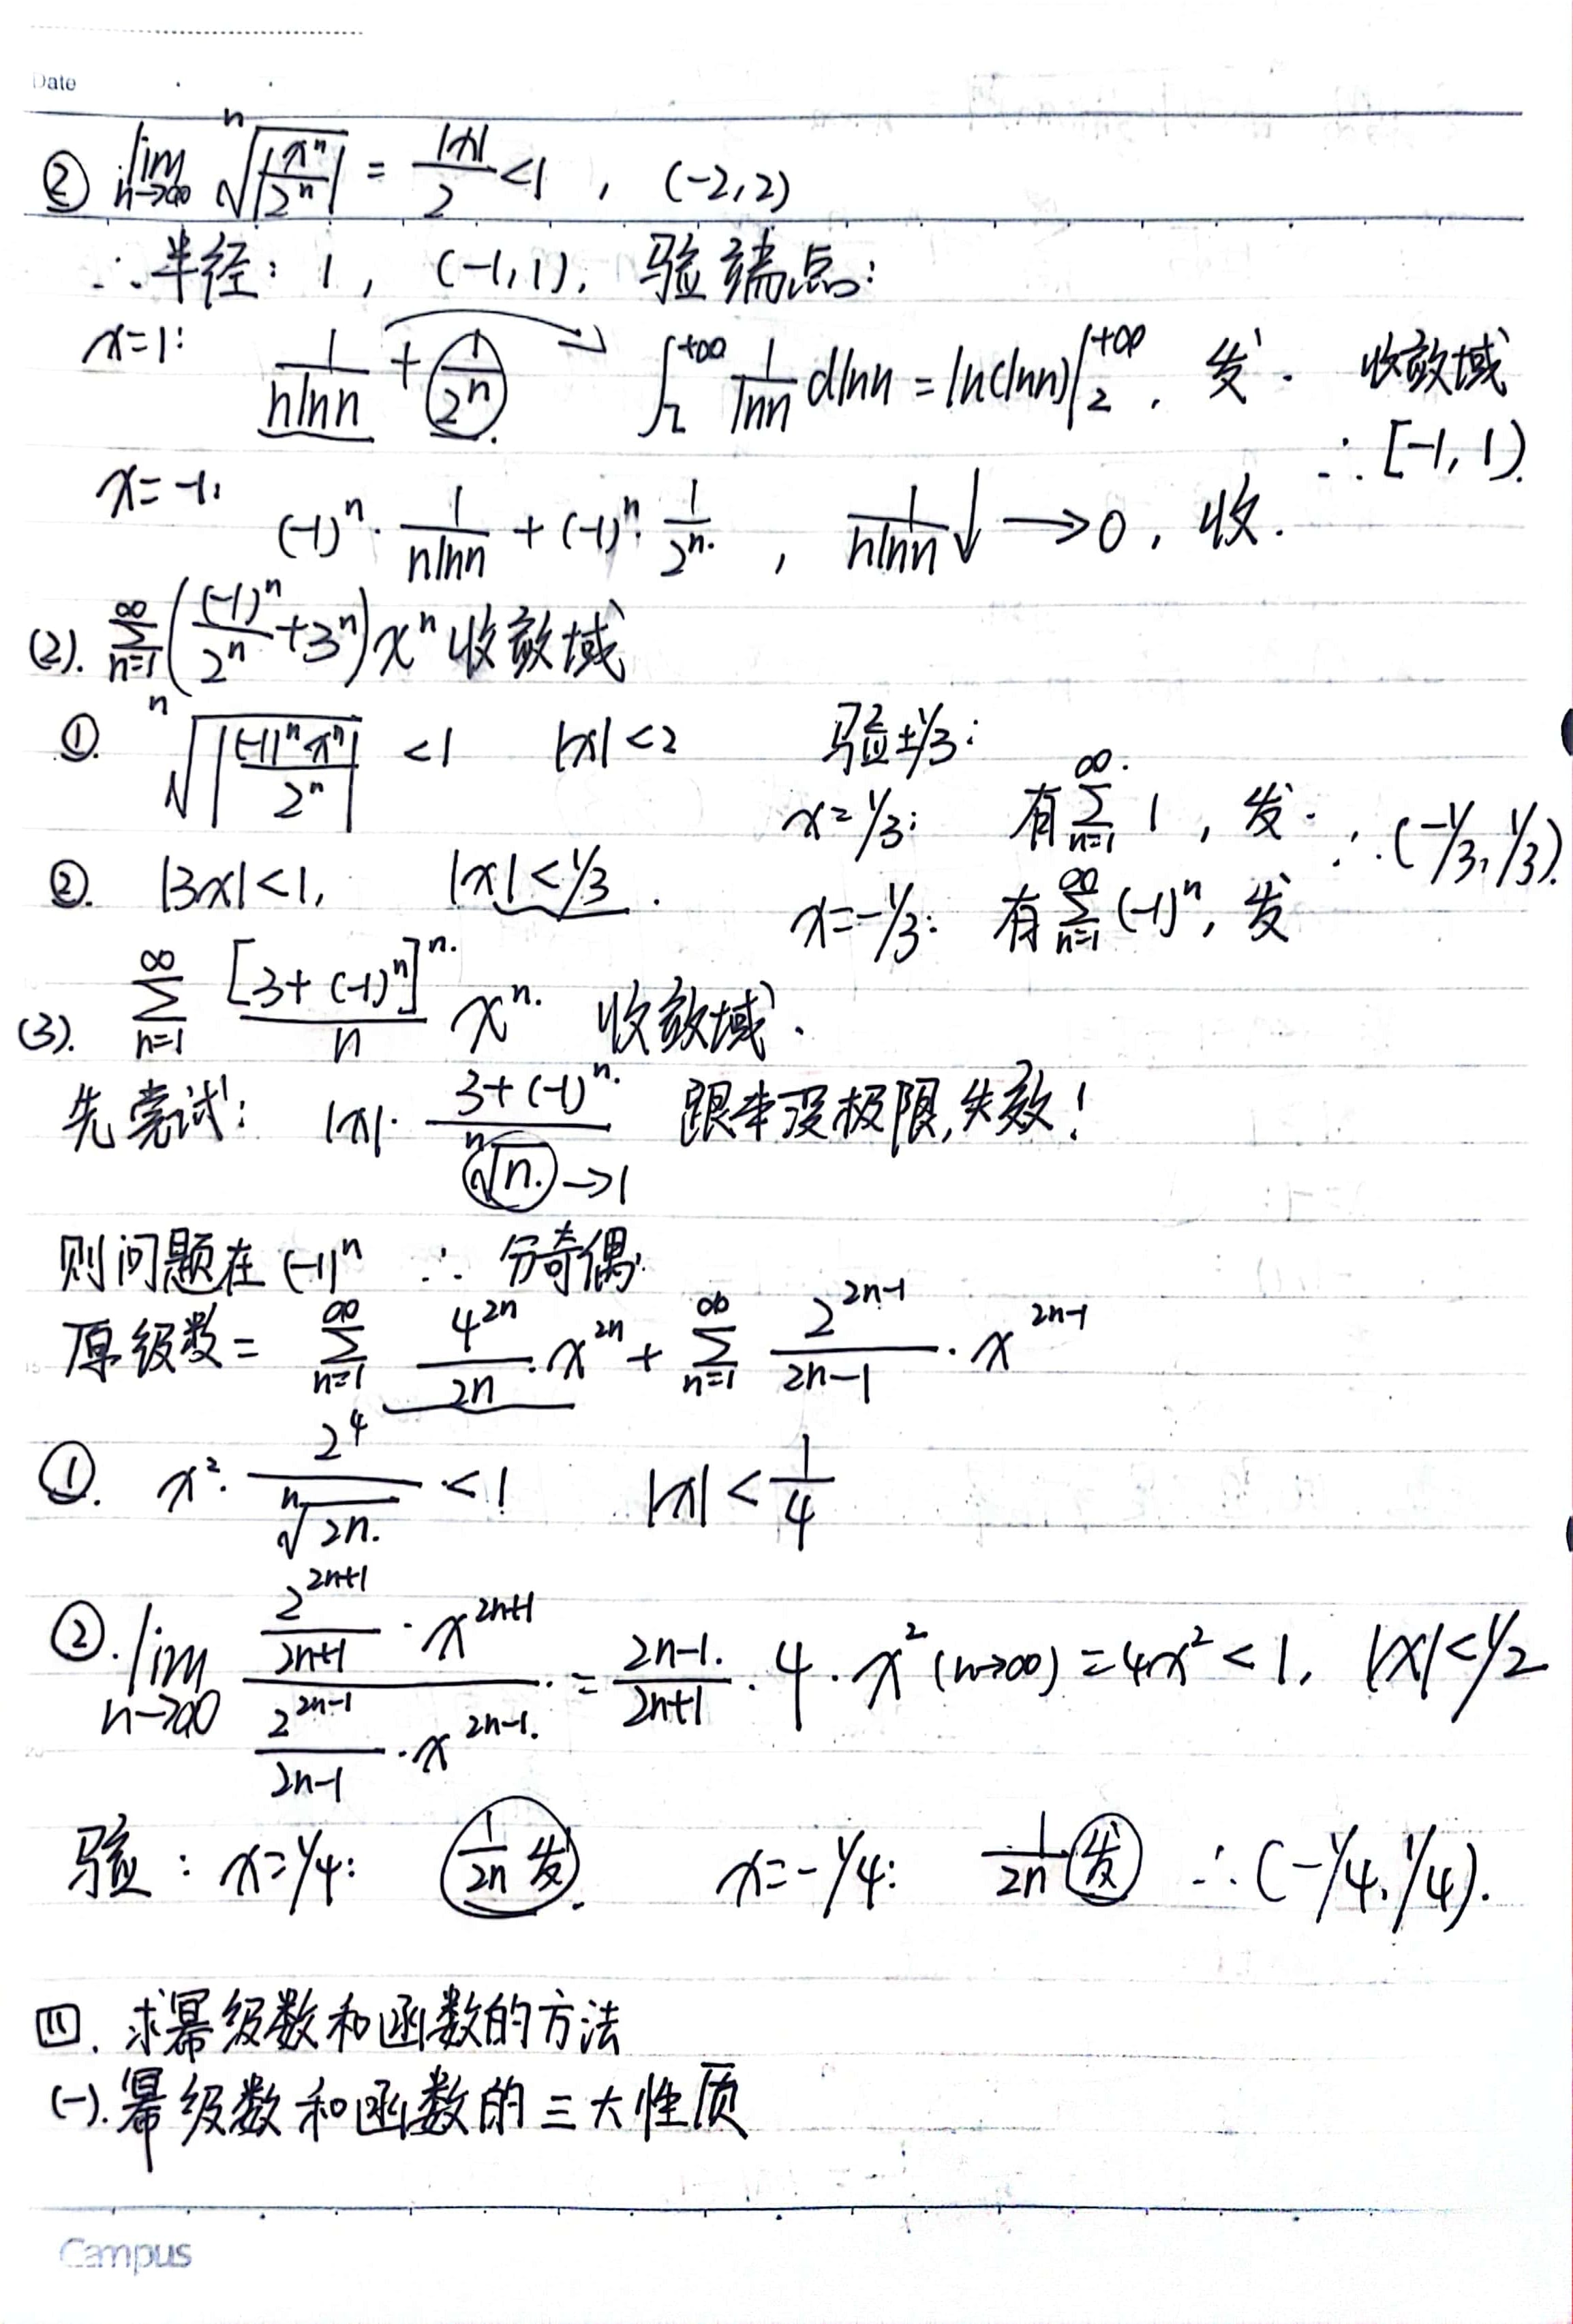 Date
② lim n→∞ ⁿ√|xⁿ/2ⁿ| = |x|/2 <1 , (-2,2)
∴半径: 1, (-1,1). 验端点:
x=1: 1/(nlnn) + 1/2ⁿ ∫₂^{+∞} 1/lnn dlnn = ln(lnn)|₂^{+∞}, 发. 收敛域
∴[-1,1).
x=-1: (-1)ⁿ·1/(nlnn) + (-1)ⁿ·1/2ⁿ. , 1/(nlnn)↓ →0, 收.
(2). ∑_{n=1}^{∞}((-1)ⁿ/2ⁿ+3ⁿ)xⁿ 收敛域
①. ⁿ√|(-1)ⁿxⁿ/2ⁿ| <1 |x|<2 验±1/3:
x=1/3: 有∑_{n=1}^{∞} 1, 发. ∴(-1/3,1/3).
②. |3x|<1, |x|<1/3.
x=-1/3: 有∑_{n=1}^{∞}(-1)ⁿ, 发
(3). ∑_{n=1}^{∞} [3+(-1)ⁿ]ⁿ/n xⁿ. 收敛域.
先尝试: |x|· (3+(-1)ⁿ)/ⁿ√n →1 跟本没极限,失效!
则问题在(-1)ⁿ ∴ 分奇偶.
原级数= ∑_{n=1}^{∞} 4^{2n}/2n · x^{2n} + ∑_{n=1}^{∞} 2^{2n-1}/(2n-1) · x^{2n-1}
①. x²· 2⁴/ⁿ√2n <1 |x|<1/4
②. lim n→∞ (2^{2n+1}/(2n+1) · x^{2n+1})/(2^{2n-1}/(2n-1) · x^{2n-1}) = (2n-1)/(2n+1) · 4 · x² (n→∞) =4x²<1, |x|<1/2
验: x=1/4: 1/2n 发. x=-1/4: 1/2n 发 ∴(-1/4,1/4).
四. 求幂级数和函数的方法
(一).幂级数和函数的三大性质
Campus